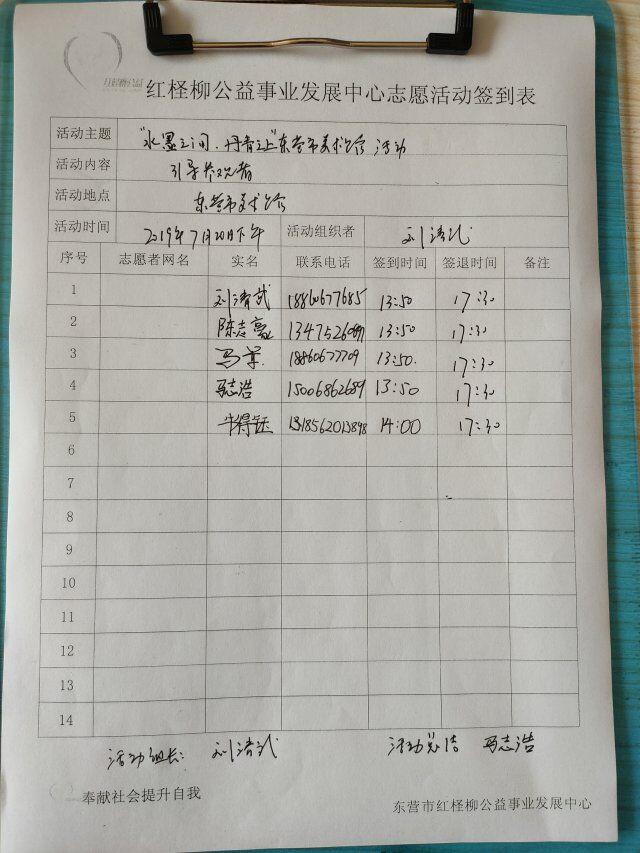 红柽柳公益
红柽柳公益事业发展中心志愿活动签到表
活动主题 "水墨之间·丹青之上"东营市美术馆 活动
活动内容 引导参观者
活动地点 东营市美术馆
活动时间 2019年7月20日下午 活动组织者 刘清武
序号 志愿者网名 实名 联系电话 签到时间 签退时间 备注
1 刘清武 18860677685 13:50 17:30
2 陈志豪 13:50 17:30
3 18860677709 13:50. 17:30
4 马志浩 15006862689 13:50 17:30
5 牛得钰 14:00 17:30
6
7
8
9
10
11
12
13
14
活动组长: 刘清武 活动总结 马志浩
奉献社会提升自我
东营市红柽柳公益事业发展中心